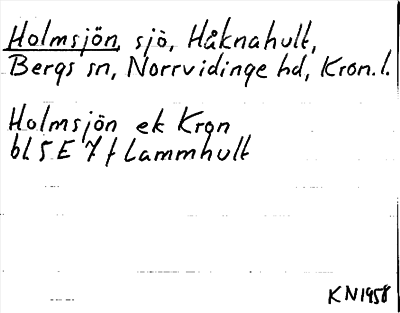 Holmsjön, sjö, Håknahult,
Bergs sn, Norrvidinge hd, Kron.l.
Holmsjön ek Kron
bl 5 E 7 f Lammhult
KN 1958